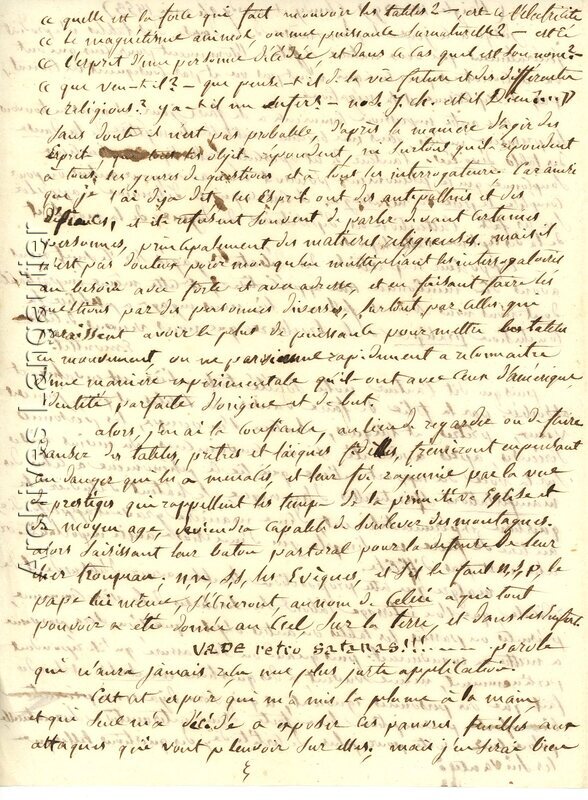 « quelle est la force qui fait mouvoir les tables? — est-ce l'électricité
« le magnétisme animal ou une puissance surnaturelle? — est-ce
« l'esprit d'une personne décédée, et dans ce cas quel est son nom? —
« que veut-il? — que pense-t-il de la vie future et des différentes
« religions? y a-t-il un enfer? — est-il Dieu....?
Sans doute il n'est pas probable, d'après la manière d'agir des
Esprits objets répondent, ni surtout qu'ils répondent
à tous les genres de questions, et à tous les interrogatoires. Car ainsi
que je l'ai déjà dit, les Esprits ont des antipathies et des
et ils refusent souvent de parler devant certaines
personnes, principalement des matieres religieuses, mais il
n'est pas douteux pour moi qu'en multipliant les interrogatoires
au besoin avec force et avec adresse, et en faisant faire les
questions par des personnes diverses, surtout par celles qui
paraissent avoir le plus de puissance pour mettre les tables
en mouvement, on ne parvienne rapidement a reconnaitre
d'une manière expérimentale qu'ils ont avec ceux d'amérique
identité parfaite d'origine et de but.
alors, j'en ai la confiance, au lieu de regarder ou de faire
danser des tables, prêtres et laïques fidèles, frémiront en pensant
au danger qui les a menacés, et leur foi par la vue
de prestiges qui rappellent les temps de la primitive Eglise et
du moyen age, deviendra capable de soulever des montagnes.
alors saisissant leur baton pastoral pour la défense de leur
cher troupeau. NN. SS. les Evêques, et s'il le faut N. S. P. le
pape lui même, s'écrieront, au nom de Celui a qui tout
pouvoir a été donné au Ciel, sur la terre, et dans les Enfers.
VADE retro satanas!!! ------ parole
qui n'aura jamais reçu une plus juste application.
C'est cet espoir qui m'a mis la plume à la main
et qui seul m'a décidé a exposer ces pauvres feuilles aux
attaques qui vont pleuvoir sur elles, mais j'en serai bien
Archives Langautier